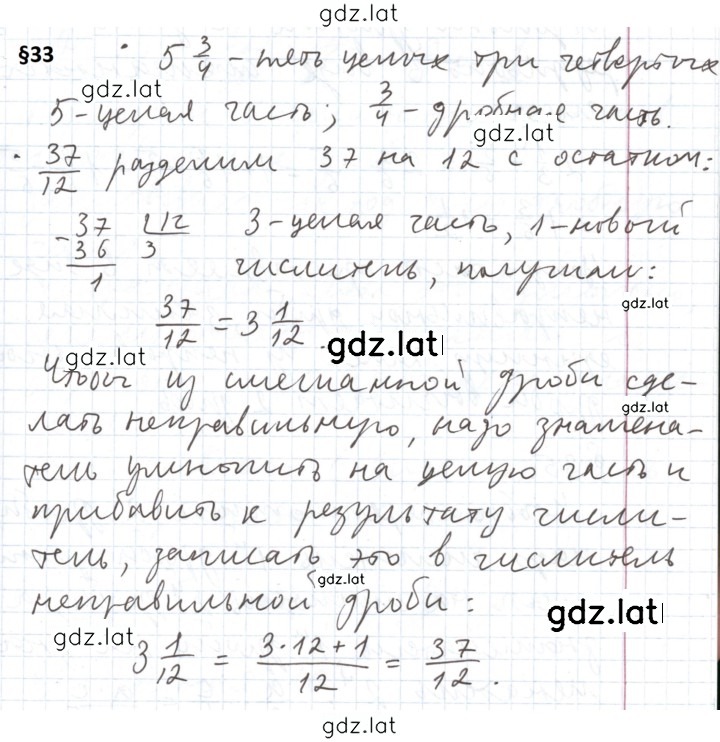 gdz.lat
§33 • 5 3/4 - пять целых три четвертых
gdz.lat
5 - целая часть; 3/4 - дробная часть.
gdz.lat
• 37/12 разделим 37 на 12 с остатком:
- 37 | 12 3 - целая часть, 1 - новый
36 3 числитель, получили:
1
gdz.lat
37/12 = 3 1/12.
gdz.lat
gdz.lat
Чтобы из смешанной дроби сде-
gdz.lat
лать неправильную, надо знамена-
тель умножить на целую часть и
прибавить к результату числи-
тель, записать это в числитель
gdz.lat
неправильной дроби:
gdz.lat
gdz.lat
3 1/12 = (3·12+1)/12 = 37/12.
gdz.lat